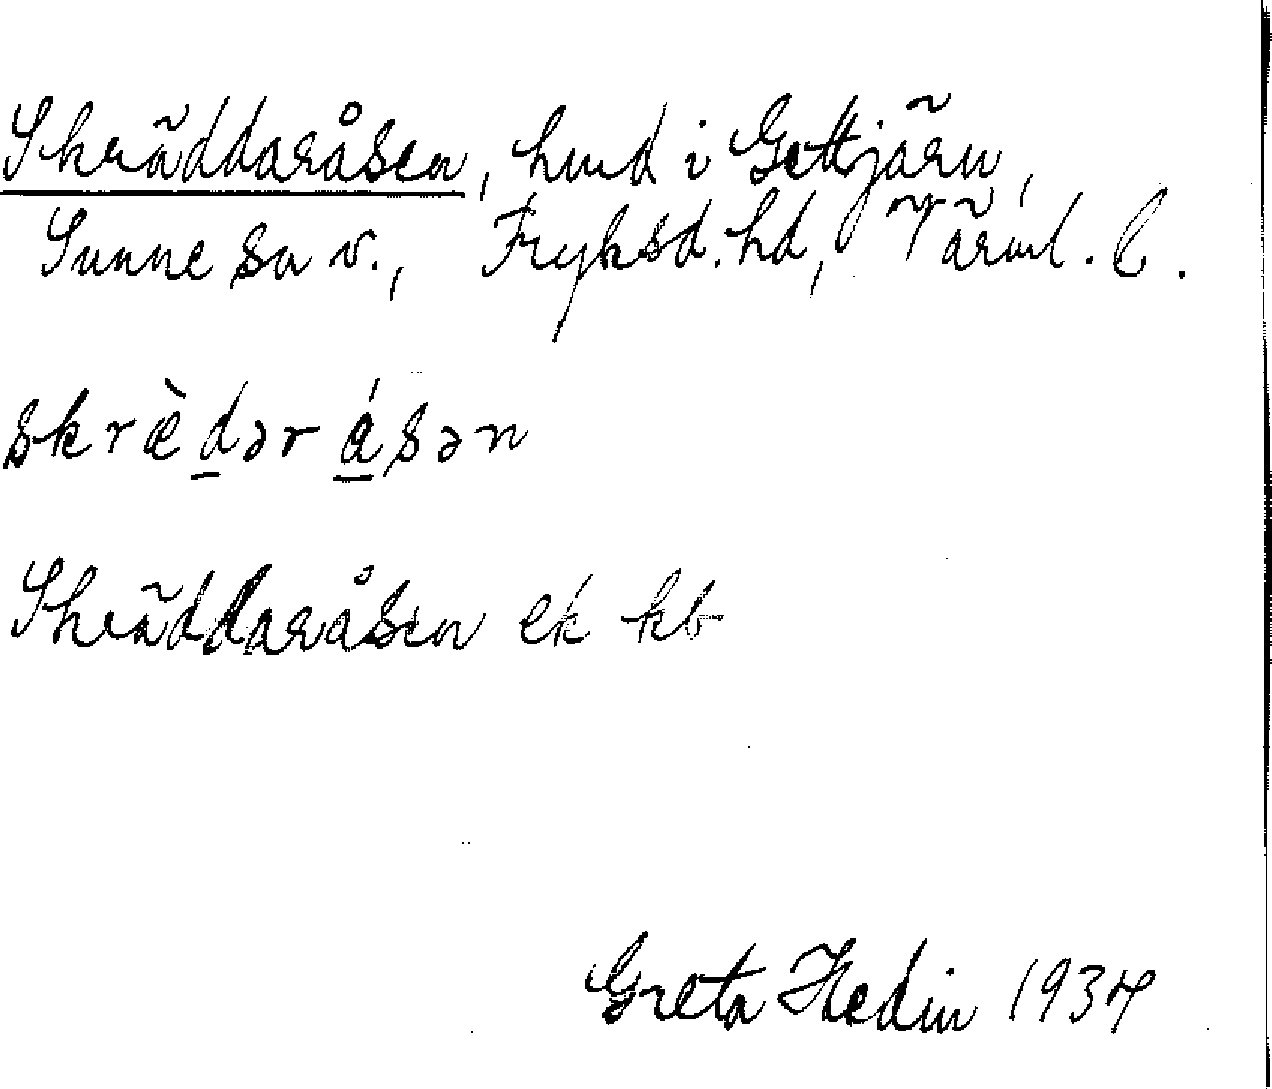 Skräddaråsen, hmd i Gettjärn,
Sunne sn v., Fryksd. hd, Värml. l.
skræ̀d̲ərá̲sən
Skräddaråsen ek kb
Greta Hedin 1934